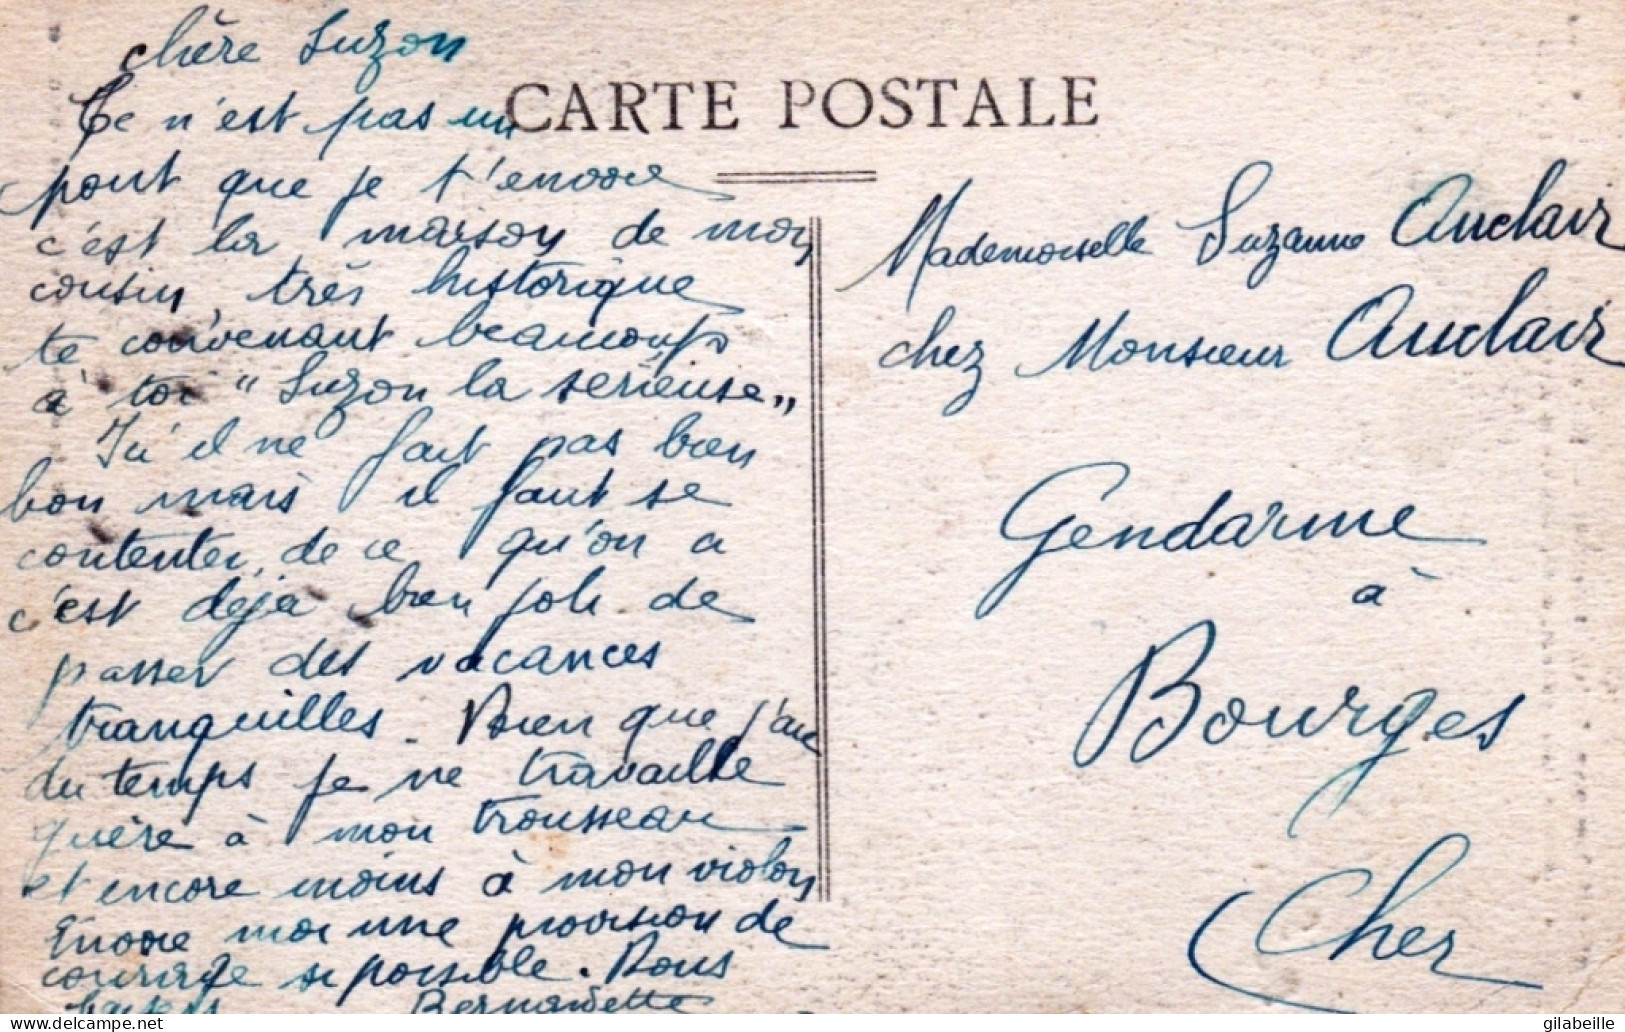 chère Suzon
Ce n'est pas un
pont que je t'envoie
c'est la maison de mon
cousin, très historique
te convenant beaucoup
à toi "Suzon la serieuse"
Ici il ne fait pas bien
bon mais il faut se
contenter de ce qu'on a
c'est déjà bien joli de
passer des vacances
tranquilles. Bien que j'aie
du temps je ne travaille
guère à mon trousseau
et encore moins à mon violon
Envoie moi une provision de
courage si possible. Bons
baisers Bernadette
CARTE POSTALE
Mademoiselle Suzanne Auclair
chez Monsieur Auclair
Gendarme
à
Bourges
Cher
gilabeille